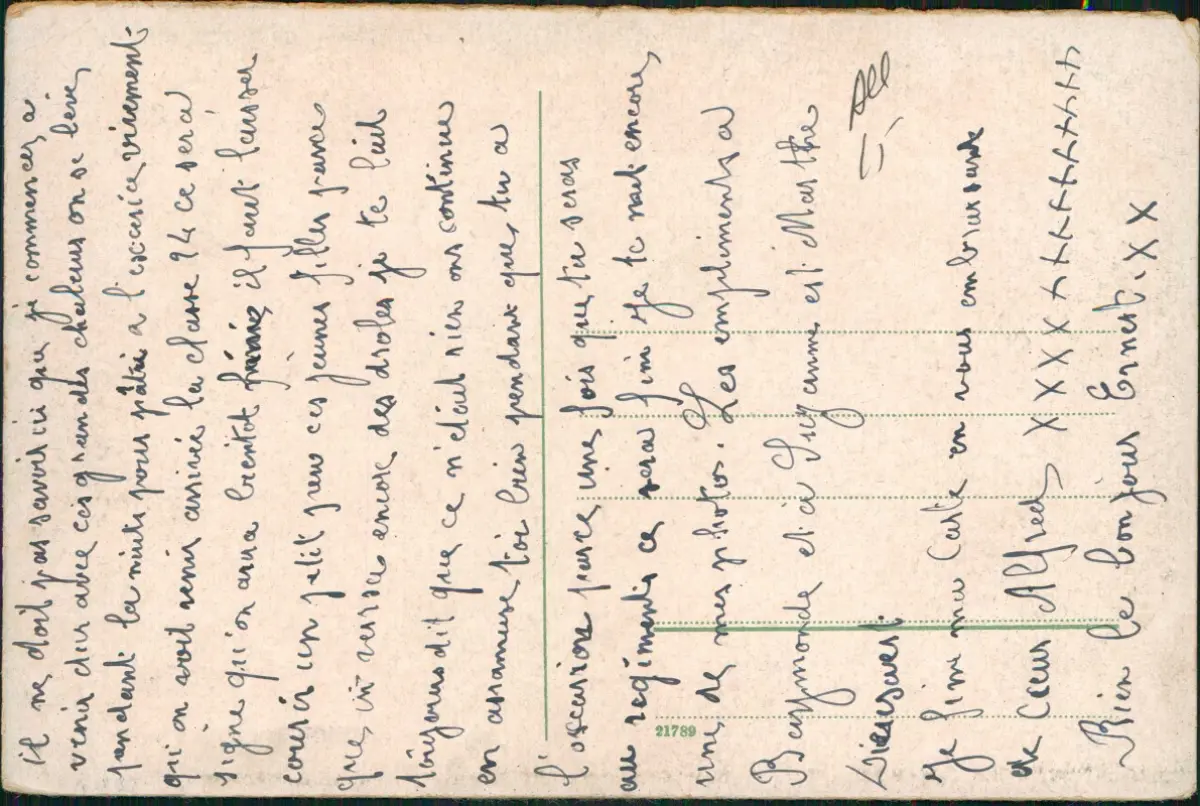 il ne doit pas savoir ici que ji commences a
venir dur avec ces grandes chaleurs on se lève
pendant la nuit pour  a l'excerice vivement
qu'on voit venir arrivé la classe 24 ce sera
signe qu'on aura bientot  il faut laisser
courir un petit peu ces jeunes filles parce
que, vous verrai encore des droles je te l'ait
toujours dit que ce n'était rien ons continue
en assamuse toi bien pendant que, tu a
l'occasion parce, une fois que tu seras
au régiments ce sera fini Je te rait encore,
une, de mes photos. Les complimentsa
Beaymonde et a Suzanne et. Marthe
Diersaert.
Je fini ma Carte en vous embrassant
de Cœur Alfred, X X X X X X X X X X X X
Bien le bonjour Ernest. X X
21789